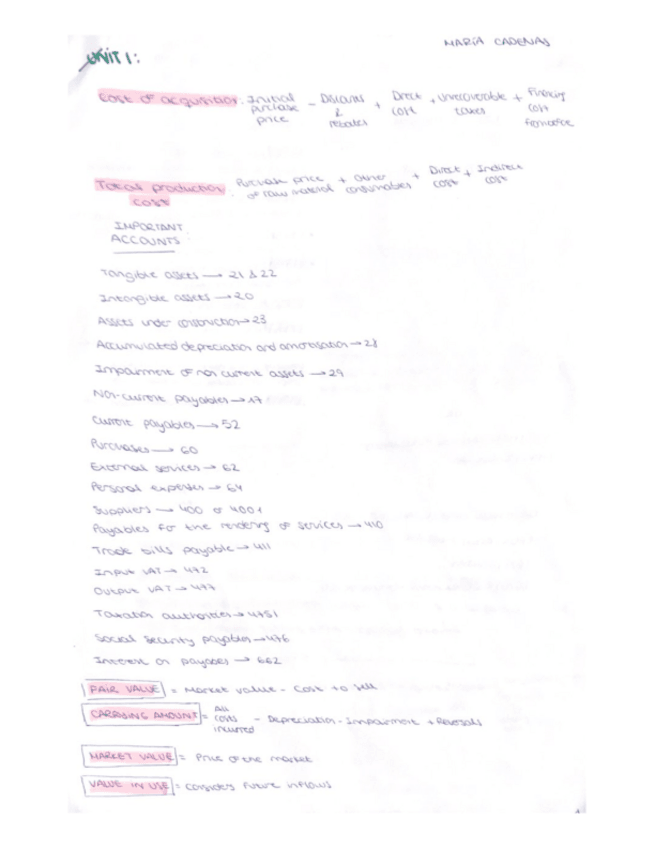 MARÍA CADENAS
UNIT 1:
Cost of acquisition: Initial purchase price - Discounts & rebates + Direct cost + Unrecoverable taxes + Financing cost
Total production cost: Purchase price of raw material + Other consumables + Direct cost + Indirect cost
IMPORTANT
ACCOUNTS
Tangible assets → 21 & 22
Intangible assets → 20
Assets under construction → 23
Accumulated depreciation and amortisation → 28
Impairment of non current assets → 29
Non-current payables → 17
Current payables → 52
Purchases → 60
External services → 62
Personal expenses → 64
Suppliers → 400 or 4001
Payables for the rendering of services → 410
Trade bills payable → 411
Input VAT → 472
Output VAT → 477
Taxation authorities → 4751
Social Security payables → 476
Interest on payables → 662
FAIR VALUE = Market value - Cost to sell
CARRYING AMOUNT = All costs incurred - Depreciation - Impairment + Reversals
MARKET VALUE = Price of the market
VALUE IN USE = Considers future inflows